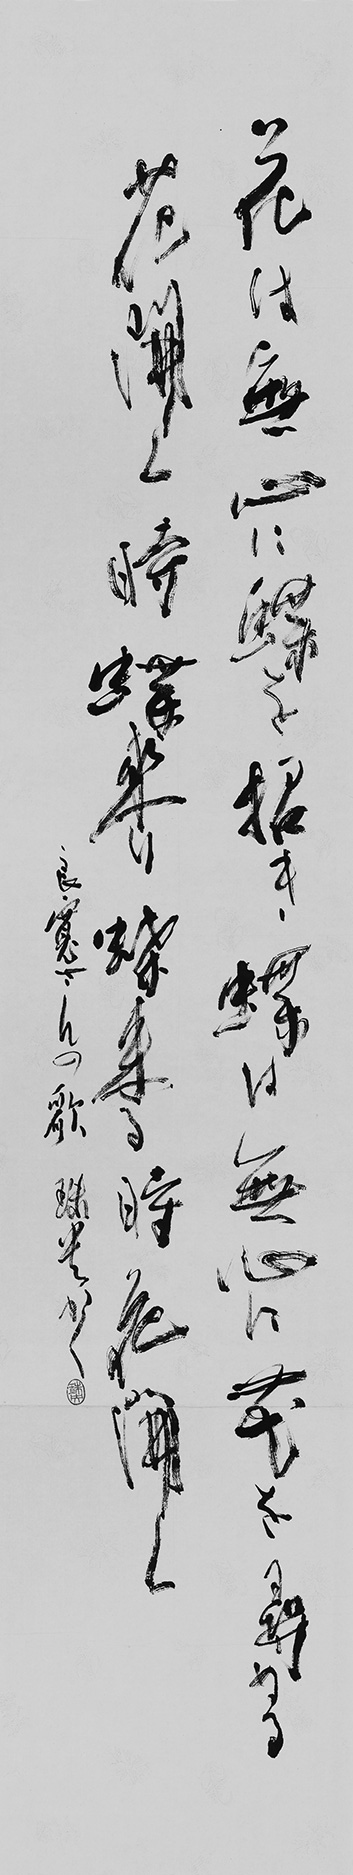 花は無心に蝶を招き蝶は無心に花を尋ねる
花開く時蝶来り蝶来る時花開く
良寛さんの歌 かく